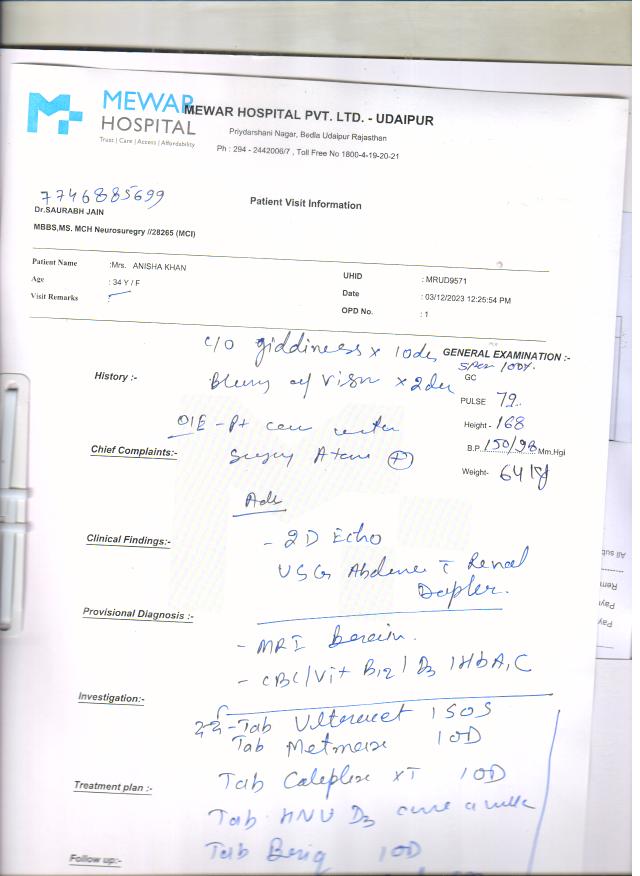 MEWAR
HOSPITAL
Trust | Care | Access | Affordability
MEWAR HOSPITAL PVT. LTD. - UDAIPUR
Priydarshani Nagar, Bedla Udaipur Rajasthan
Ph : 294 - 2442006/7 , Toll Free No 1800-4-19-20-21
7746885699
Patient Visit Information
Dr.SAURABH JAIN
MBBS,MS. MCH Neurosuregry //28265 (MCI)
Patient Name :Mrs. ANISHA KHAN UHID : MRUD9571
Age : 34 Y / F Date : 03/12/2023 12:25:54 PM
Visit Remarks : OPD No. : 1
c/o giddiness x 10d GENERAL EXAMINATION :-
SPO2 100%
History :- of Vision x 2d GC
PULSE 79
O/E - Pt Height - 168
Chief Complaints:- + B.P. 150/98 Mm.Hgi
Weight- 64 kg
Adv
Clinical Findings:- - 2D Echo
USG Renal
Doppler.
Provisional Diagnosis :-
- MRI Brain.
- CBC/Vit B12 / D3 / HbA1C
Investigation:-
Tab SOS
Tab 1OD
Treatment plan :- Tab XT 1OD
Tab D3 once a week
Follow up:- Tab 1OD